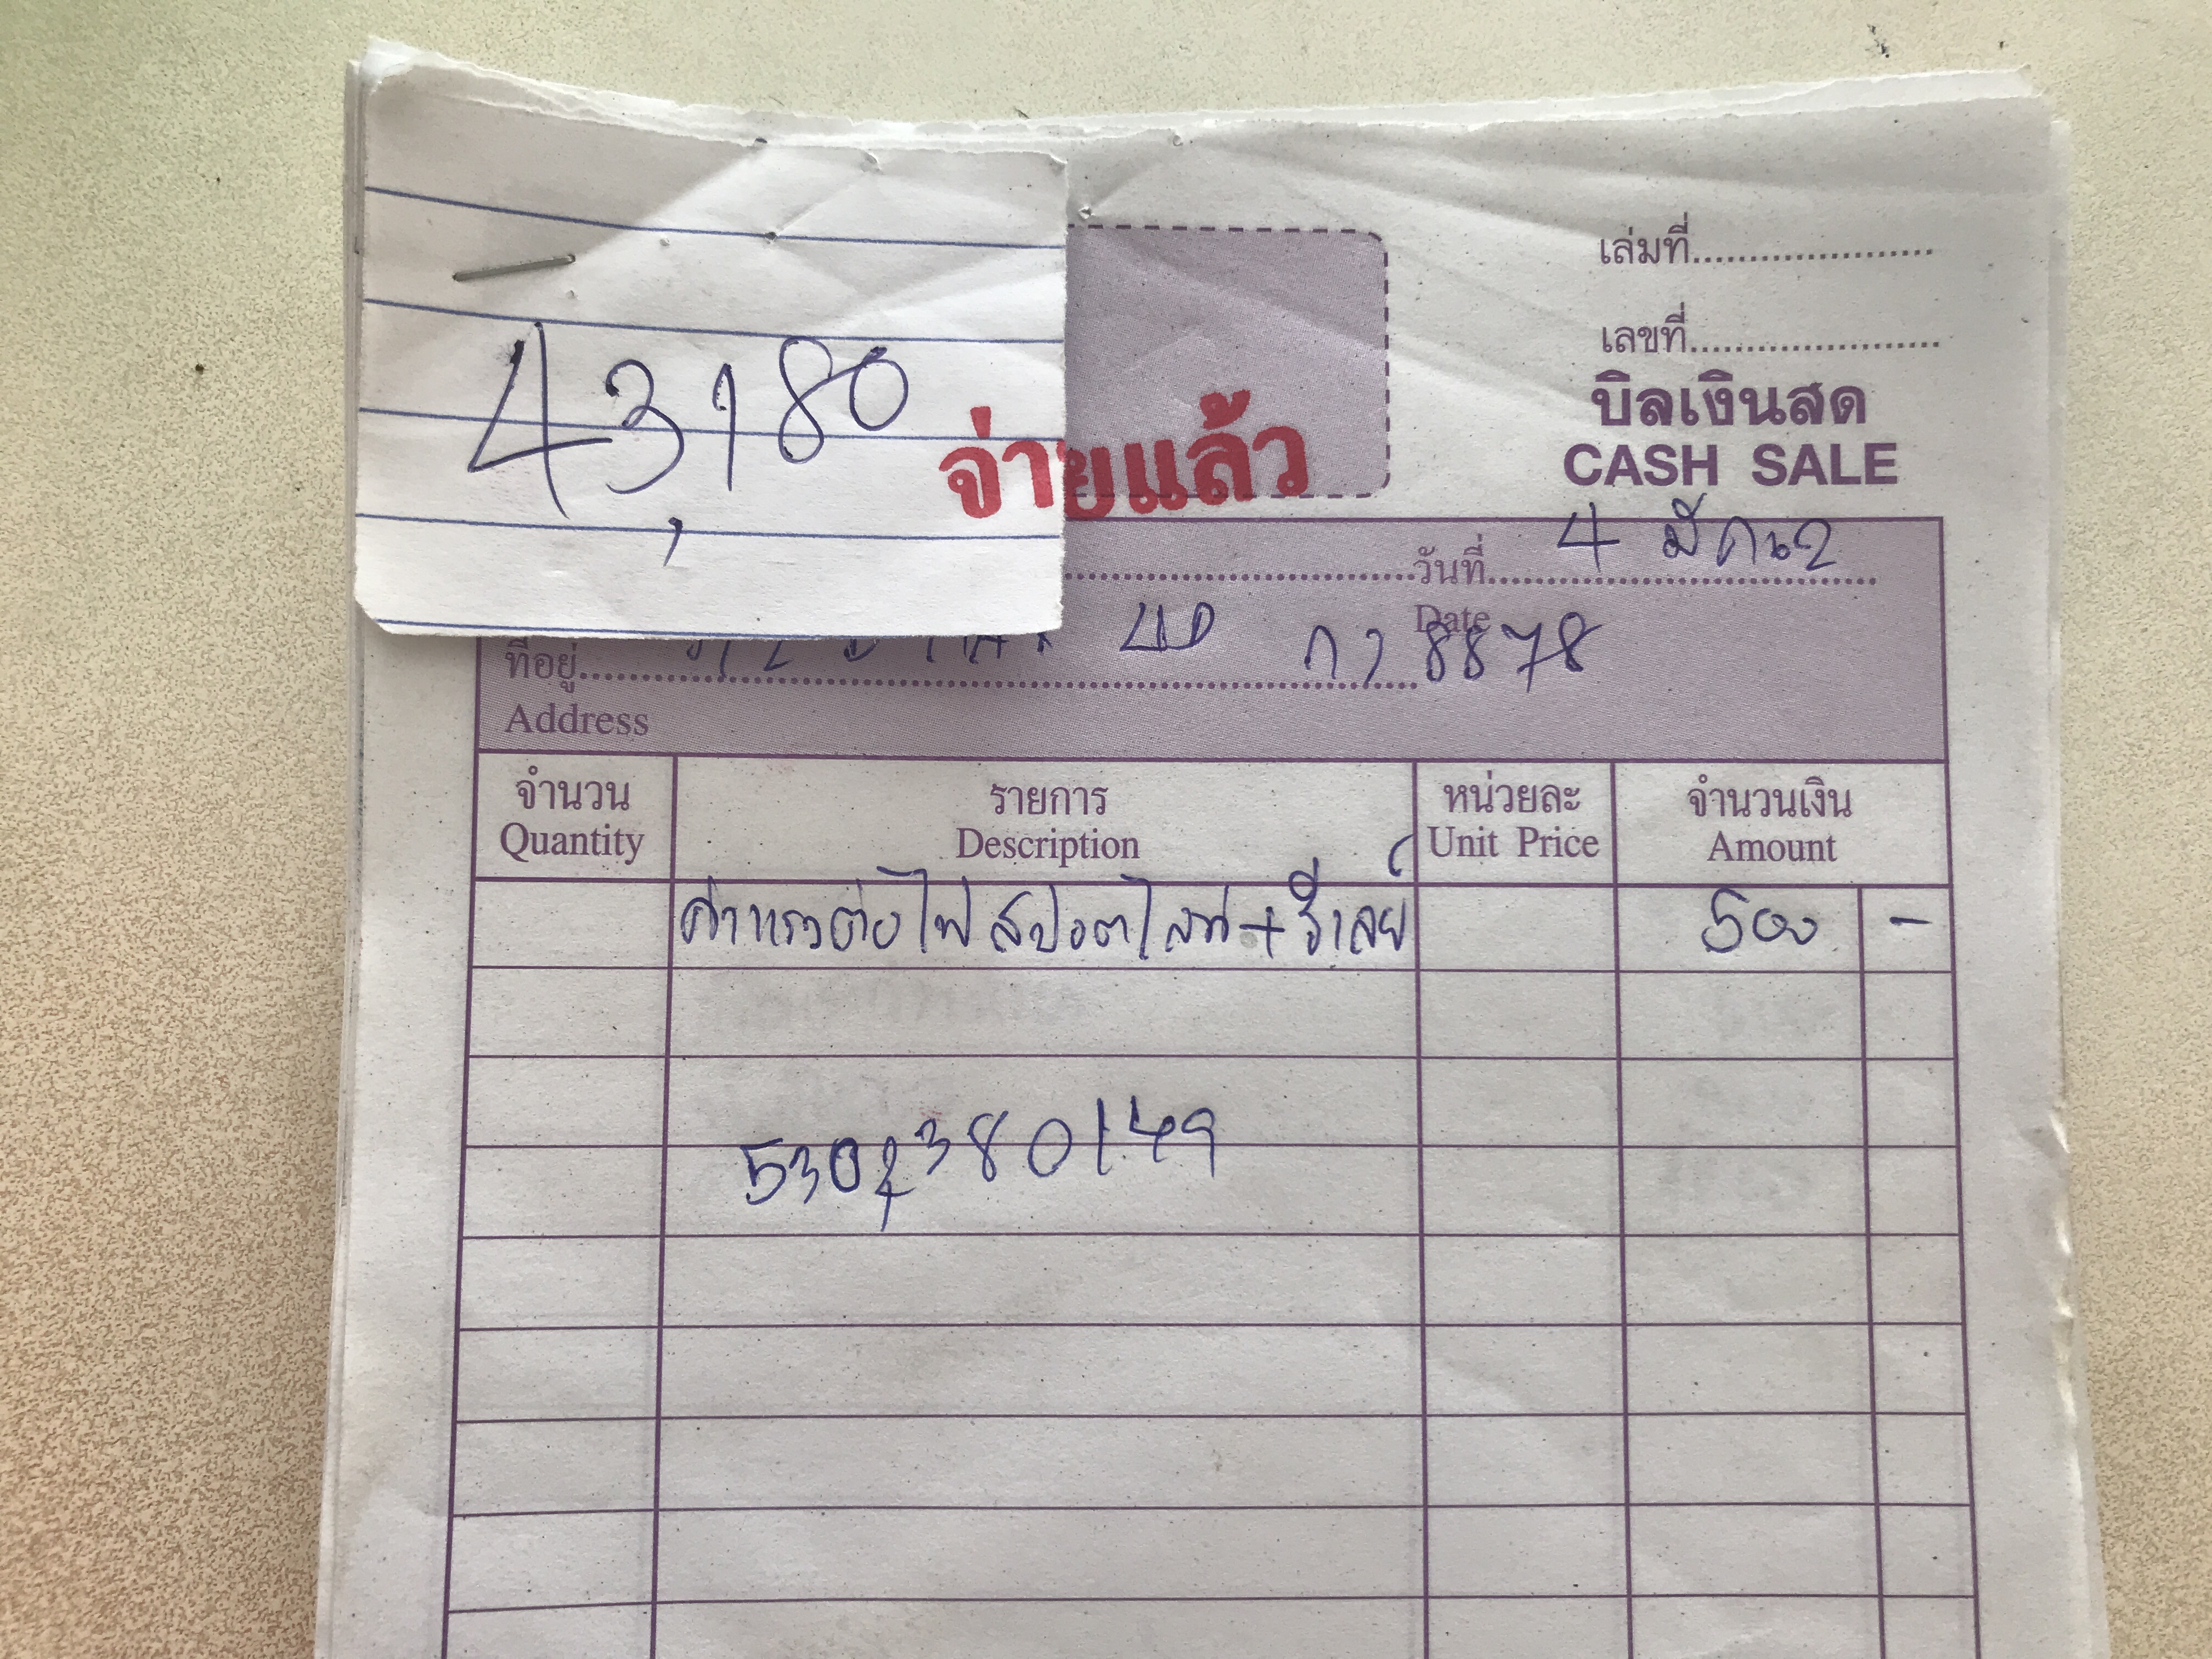 43,180
จ่ายแล้ว
เล่มที่
เลขที่
บิลเงินสด
CASH SALE
วันที่ 4 มีค 62
Date
ที่อยู่ กว 8878
Address
จำนวน รายการ หน่วยละ จำนวนเงิน
Quantity Description Unit Price Amount
ค่าแรงต่อไฟสปอตไลท์+รีเลย์ 500 -